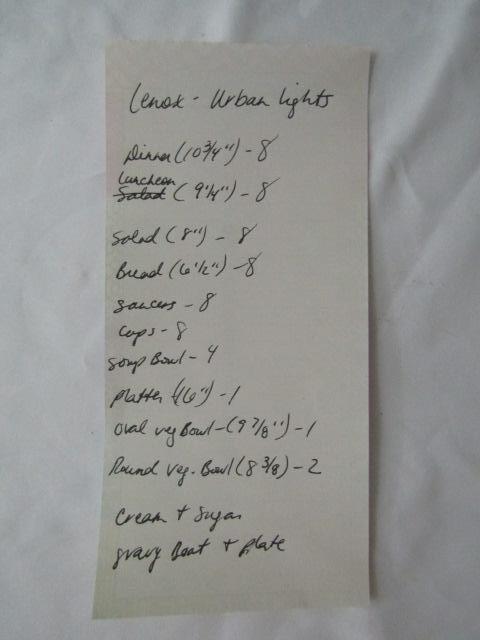 Lenox - Urban Lights
Dinner (10 3/4") - 8
Luncheon
Salad ( 9 1/4") - 8
Salad (8") - 8
Bread (6 1/2") - 8
Saucers - 8
Cups - 8
Soup Bowl - 4
Platter (16") - 1
Oval veg Bowl - (9 7/8") - 1
Round veg. Bowl (8 3/8) - 2
Cream + Sugar
gravy Boat + plate